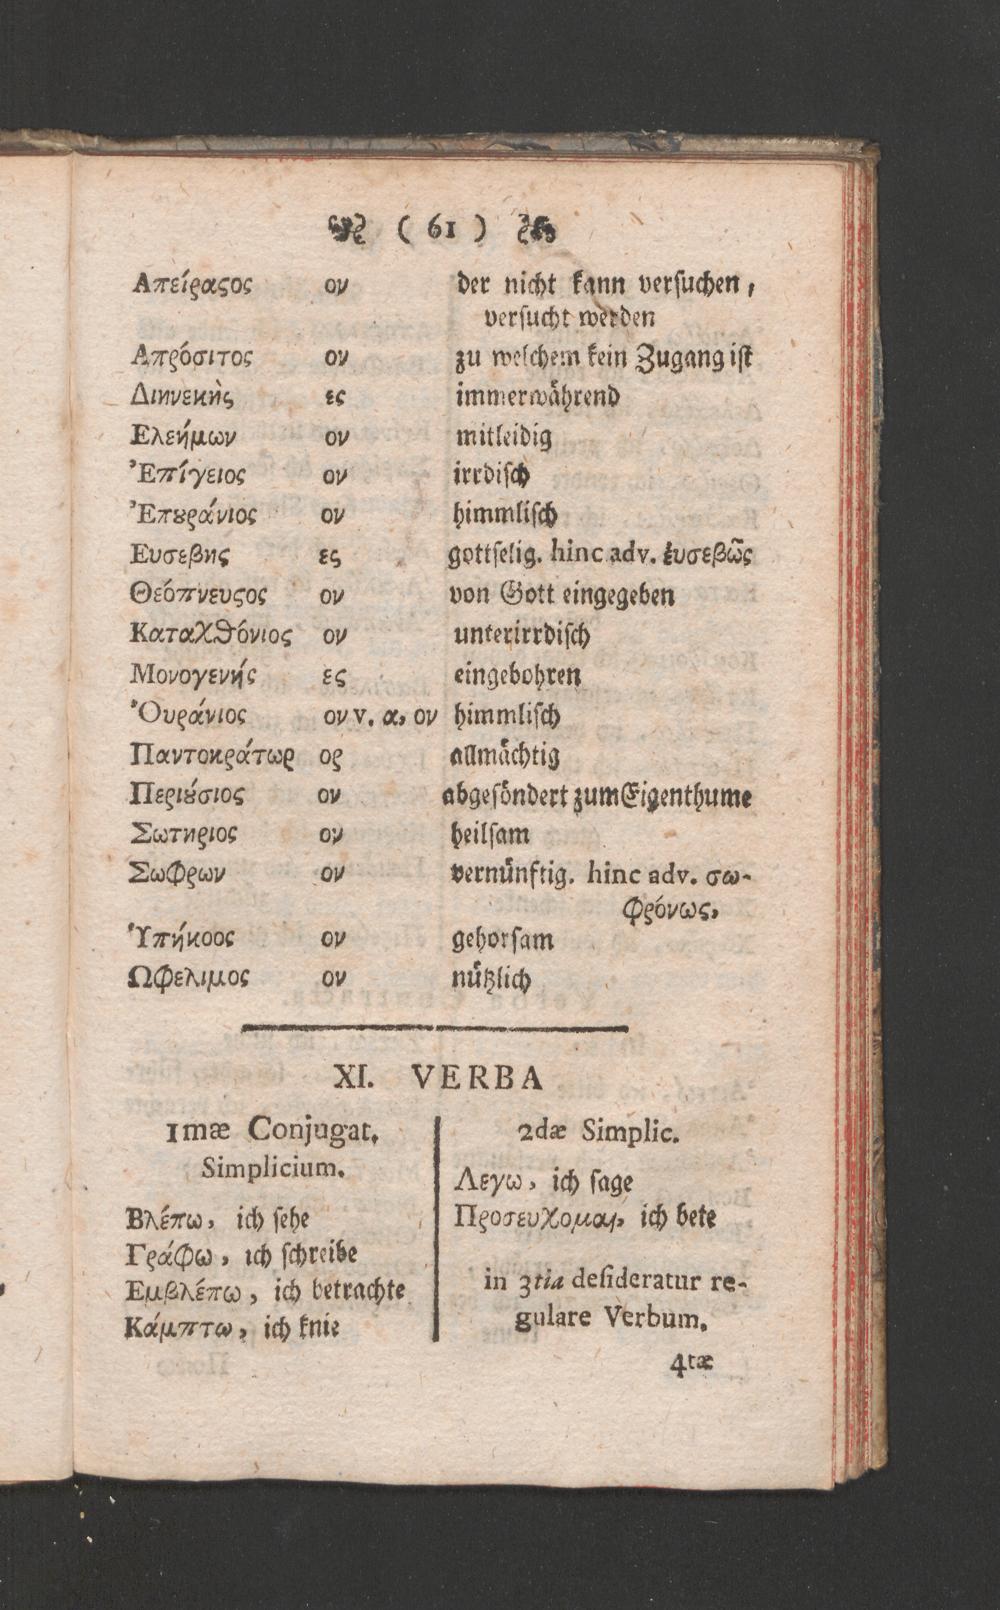 ( 61 )
Απείραϛος ον der nicht kann versuchen,
versucht werden
Απρόσιτος ον zu welchem kein Zugang ist
Διηνεκὴς ες immerwährend
Ελεήμων ον mitleidig
Ἐπίγειος ον irrdisch
Ἐπȣράνιος ον himmlisch
Ευσεβης ες gottselig. hinc adv. ἐυσεβῶς
Θεόπνευϛος ον von Gott eingegeben
Καταχθόνιος ον unterirrdisch
Μονογενής ες eingebohren
Ὀυράνιος ον v. α, ον himmlisch
Παντοκράτωρ ορ allmächtig
Περιȣ́σιος ον abgesöndert zum Eigenthume
Σωτηριος ον heilsam
Σωφρων ον vernünftig. hinc adv. σω-
φρόνως,
Ὑπήκοος ον gehorsam
Ωφελιμος ον nützlich
XI. VERBA
1mæ Conjugat.
Simplicium.
Βλέπω, ich sehe
Γράφω, ich schreibe
Εμβλέπω, ich betrachte
Κάμπτω, ich knie
2dæ Simplic.
Λεγω, ich sage
Προσευχομαι, ich bete
in 3tia desideratur re-
gulare Verbum.
4tæ